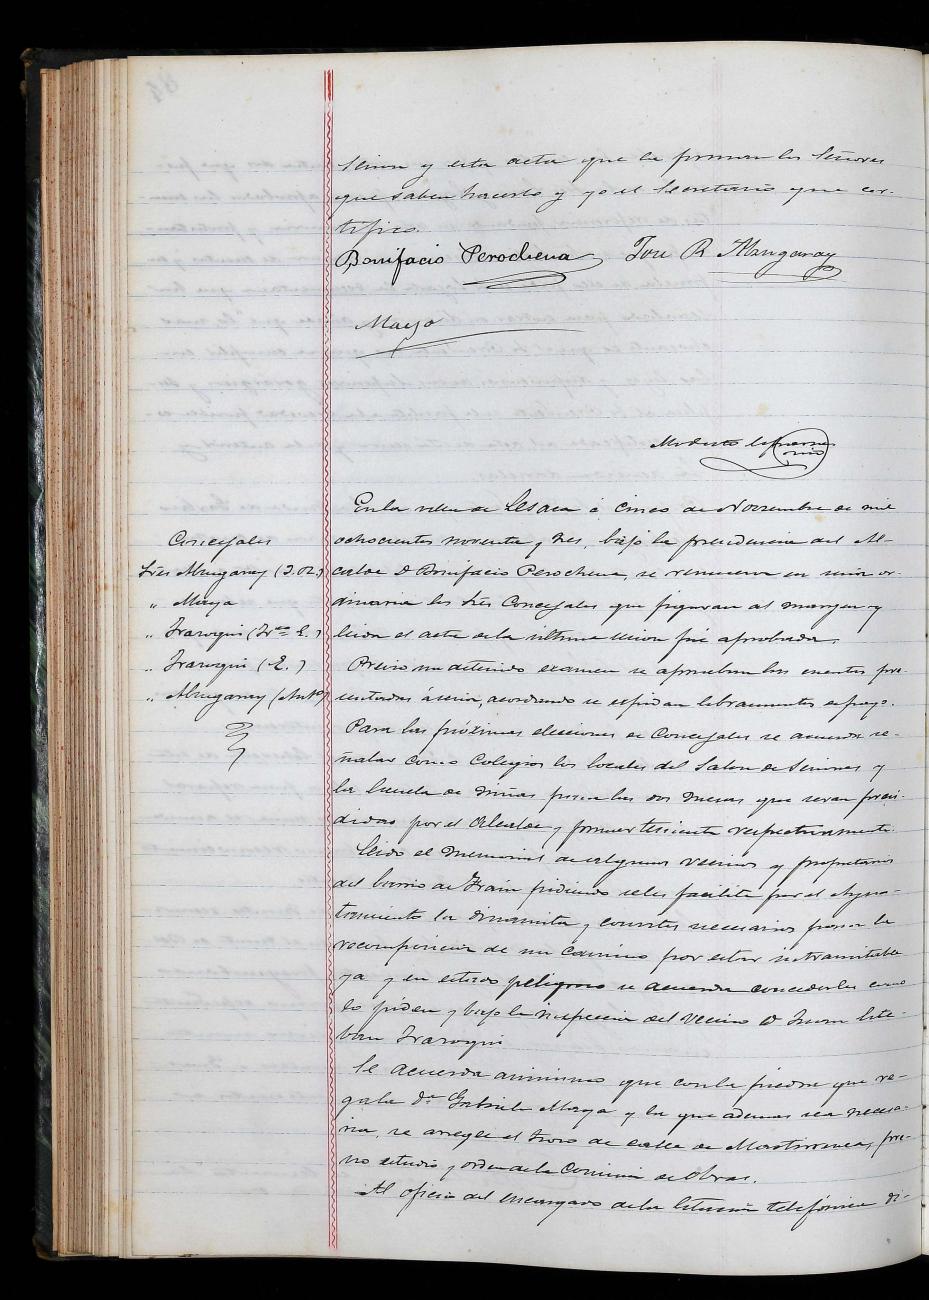 sesion y esta acta que la firman los Señores
que saben hacerlo y yo el Secretario que cer-
tifico.
Bonifacio Perochena José R. Abungaray
Maya
Modesto
En la villa de Lesaca á cinco de Noviembre de mil
Concejales
ochocientos noventa y tres, bajo la presidencia del Al-
Sres Mrugaray (J. R.)
calde D Bonifacio Perochena, se reunieron en sesion or-
" Maya
dinaria los Sres Concejales que figuran al margen y
" Irazoqui (Frco E.)
leida el acta de la última sesion fué aprobada.
" Irazoqui (E.)
Previo un detenido examen se aprueban las cuentas pre-
" Mrugaray (Anto)
sentadas á sesion, acordando se espidan libramientos de pago.
Para las próximas elecciones de Concejales se acuerda se-
ñalar como Colegios los locales del Salon de Sesiones y
la Escuela de Niñas para las dos mesas que seran presi-
didas por el Alcalde y primer teniente respectivamente.
Leido el memorial de algunos vecinos y propietarios
del barrio de Frain pidiendo se les facilite por el Ayun-
tamiento la dinamita y cohetes necesarios para la
recomposicion de un camino por estar intransitable
ya y en estado peligroso se acuerda concederles como
lo piden y bajo la inspeccion del vecino D Juan Este-
ban Irazoqui
Se acuerda asimismo que con la piedra que re-
gala Dª Gabriela Maya y la que ademas sea necesa-
ria, se arregle el trozo de calle de pre-
vio estudio y orden de la Comision de Obras.
Al oficio del encargado de la Estacion telefónica di-